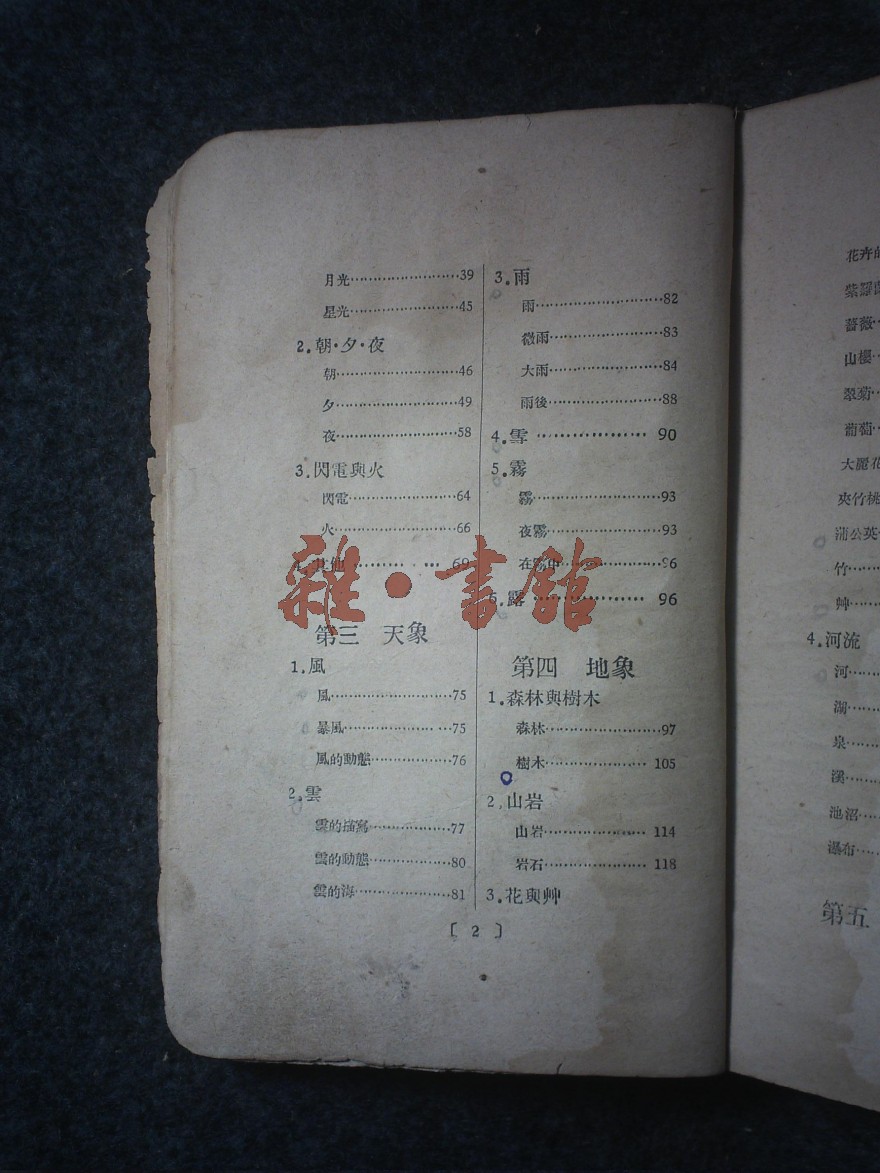 月光························39
星光························45
2.朝·夕·夜
朝························46
夕························49
夜························58
3.閃電與火
閃電························64
火························66
4.其他·················69
第三　天象
1.風
風························75
暴風························75
風的動態··················76
2.雲
雲的描寫··················77
雲的動態··················80
雲的海··················81
3.雨
雨························82
微雨························83
大雨························84
雨後························88
4.雪··················90
5.霧
霧························93
夜霧························93
在霧中··················96
6.露··················96
第四　地象
1.森林與樹木
森林························97
樹木························105
2.山岩
山岩························114
岩石························118
3.花與艸
〔2〕
雜·書館
花卉的
薔薇
山櫻
翠菊
葡萄
大麗花
夾竹桃
蒲公英
竹
艸
4.河流
河
湖
泉
溪
池沼
瀑布
第五